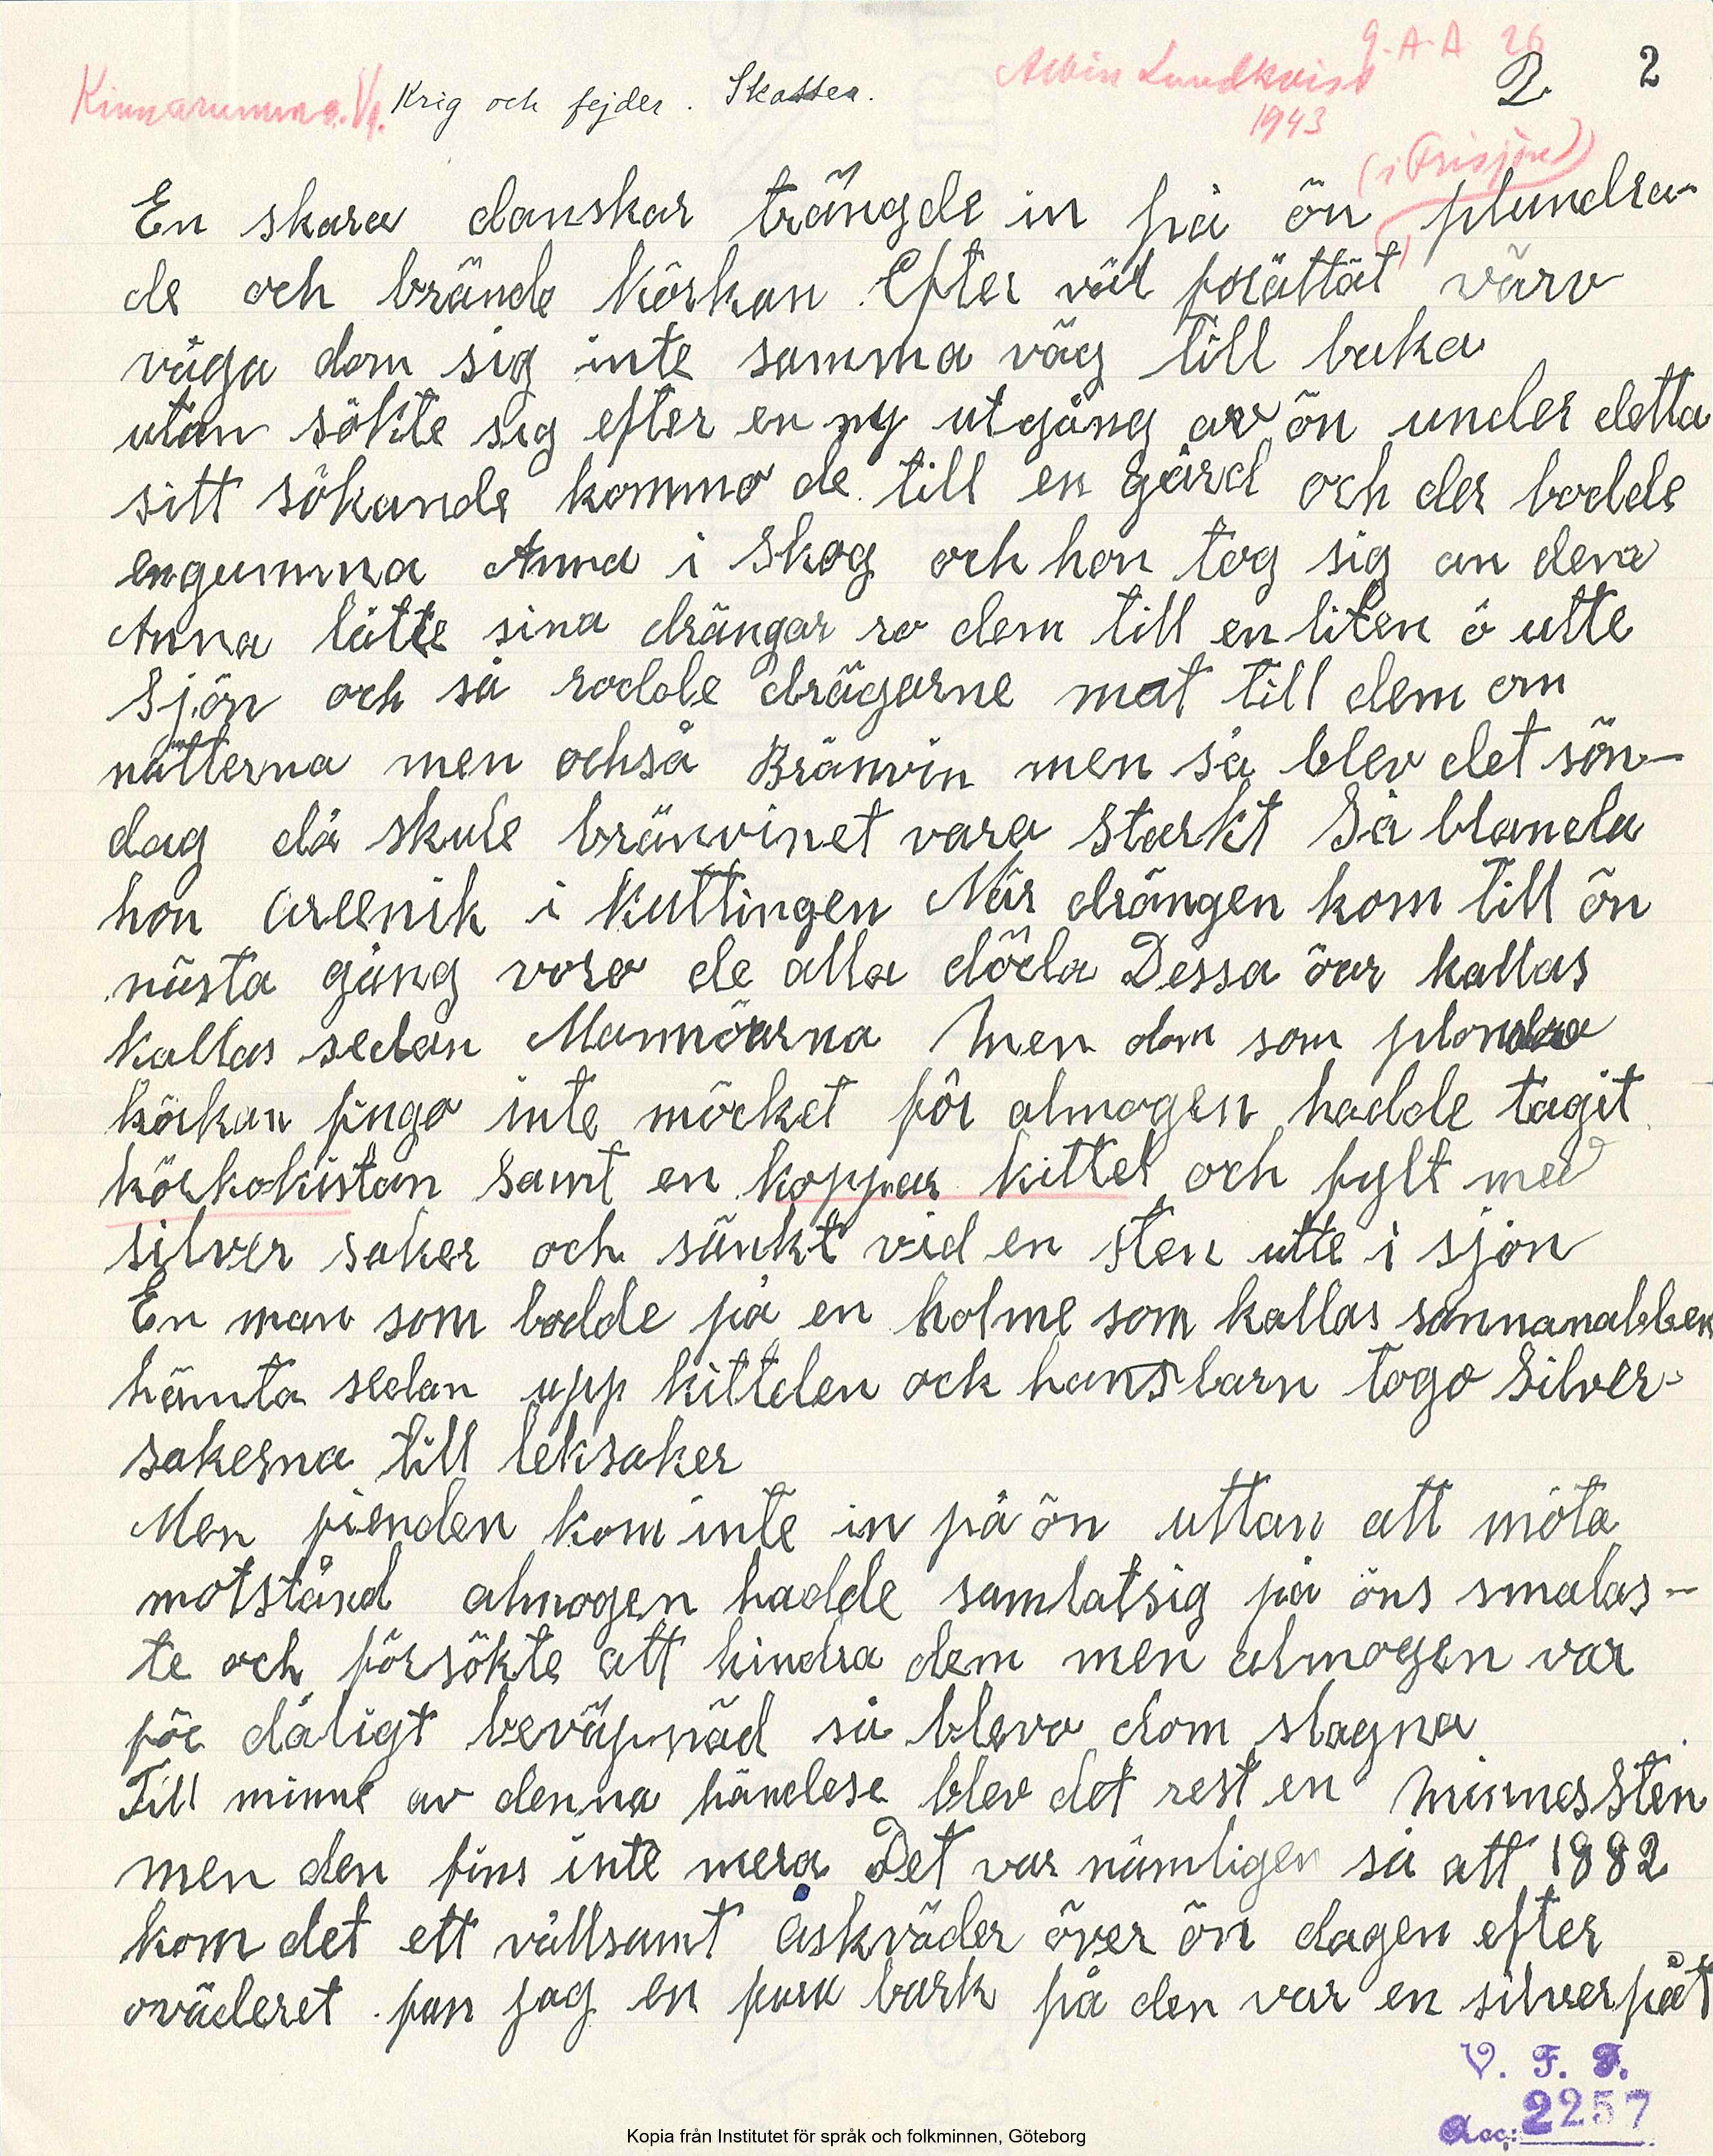 G.A.A 26
Kinnarumma. Vg. Krig och fejder. Skatter. Albin Lundkvist 2. 2
1943
(i Frisjön)
En skara danskar trängde in på ön plundra-
de och brände körkan Efter väl förättät värv
våga dom sig inte samma väg till baka
utan sökte sig efter en ny utgång av ön under detta
sitt sökande kommo de till en gård och der bodde
engumma Anna i Skog och hon tog sig an dem
Anna lätte sina drängar ro dem till en liten ö utte
Sjön och så rodde drägarne mat till dem om
nätterna men också Bränvin men så blev det sön-
dag då skule bränvinet vara Starkt Så blanda
hon areenik i kuttingen När drängen kom till ön
nästa gång voro de alla döda Dessa öar kallas
kallas sedan Mannöarna Men dom som plondra
körkan fingo inte möcket för almogen hadde tagit
körkokistan samt en koppar kittel och fylt med
silver saker och sänkt vid en sten utte i sjön
En man som bodde på en holme som kallas sannanabben
hämta sedan upp kittelen ock hans barn togo Silver-
sakerna till leksaker
Men fienden kom inte in på ön uttan att möta
motstånd almogen hadde samlatsig på öns smalas-
te och försökte att hindra dem men almogen var
för dåligt beväpnäd så blevo dom slagna
Till minne av denna händelse blev det rest en Minnessten
men den fins inte mera Det var nämligen så att 1882
kom det ett vållsamt åskväder över ön dagen efter
oväderet fan jag en furu bark på den var en silverplåt
V. F. F.
Acc: 2257
Kopia från Institutet för språk och folkminnen, Göteborg